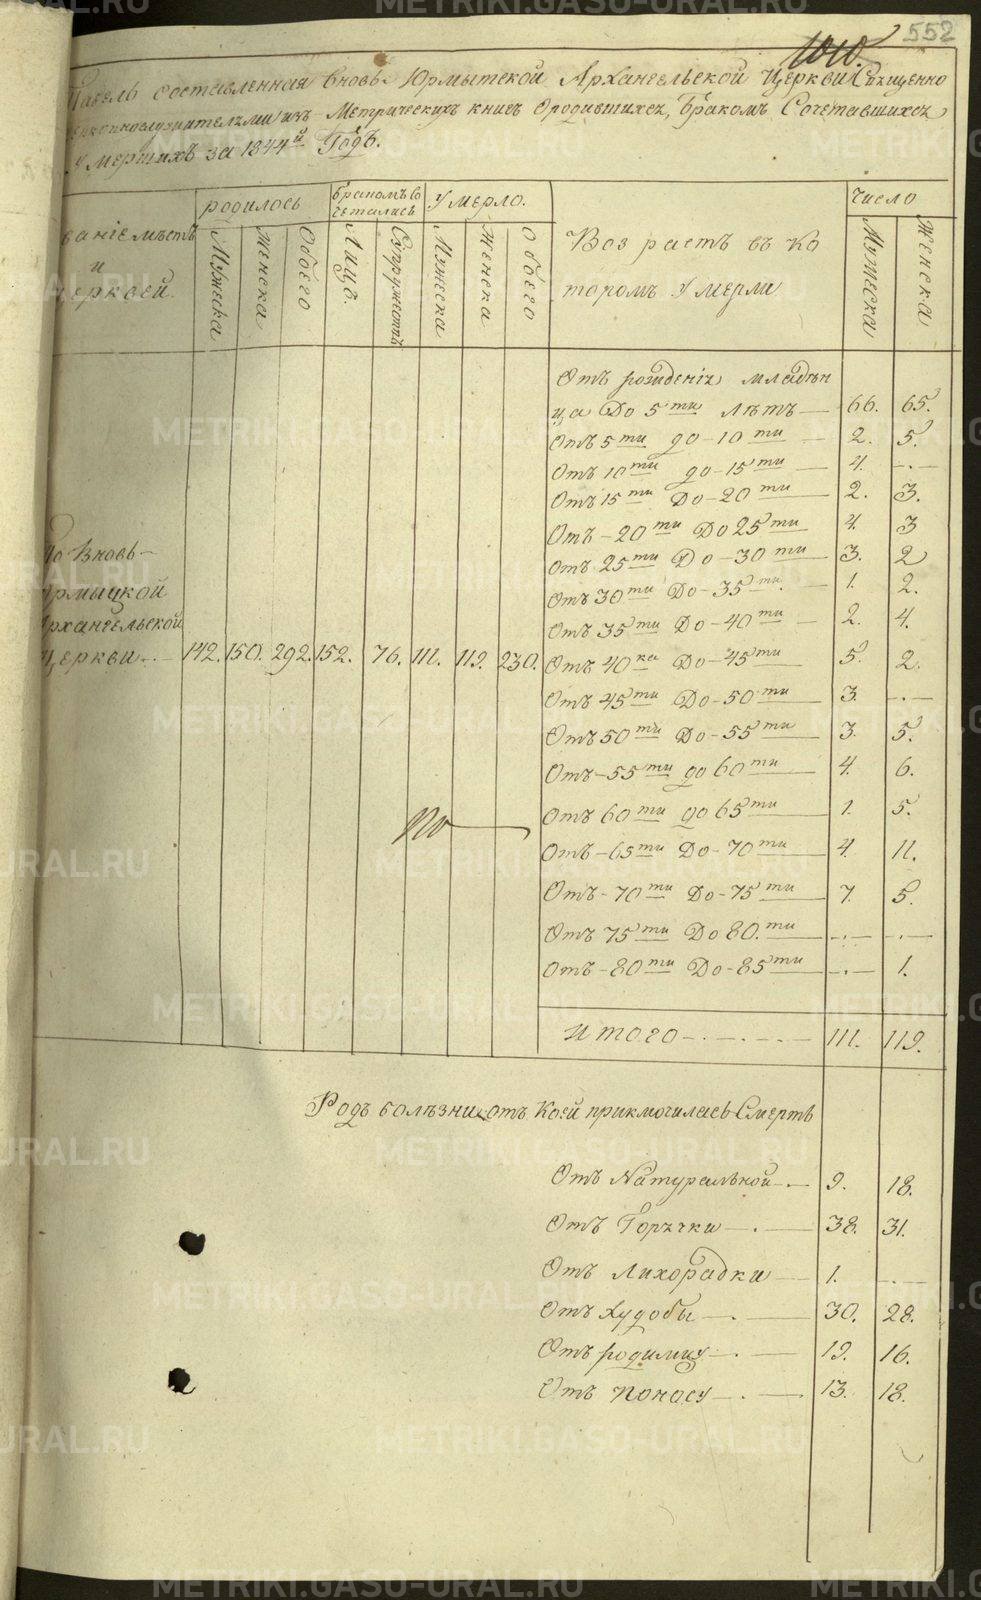 552
1010.
Табель составленная Вновь-Юрмытской Архангельской Церкви Священно
церковнослужителями изъ Метрическихъ книгъ о родившихся, бракомъ Сочетавшихся
Умершихъ за 1844й Годъ.
родилось
бракомъ со
четались
Умерло.
Число
ваніе мѣстъ
и
церквей
Мужеска
Женска
Обоего
Лицъ.
Супружествъ
Мужеска
Женска
Обоего
Возрастъ въ ко
торомъ Умерли
Мужеска
Женска
Отъ рожденія младѣн
ца До 5ти лѣтъ — 66. 65.
Отъ 5ти до-10ти — 2. 5.
Отъ 10ти до-15ти — 4. -.-
Отъ 15ти До-20ти — 2. 3.
Отъ-20ти До 25ти 4. 3
Отъ 25ти До-30ти — 3. 2
Отъ 30ти До-35ти. — 1. 2.
Отъ 35ти До-40ти — 2. 4.
По Вновь-
Юрмыцкой
Архангельской
Церкви.. — 142. 150. 292. 152. 76. 111. 119. 230.
Отъ 40ка До-45ти 5. 2.
Отъ 45ти До-50ти — 3. -.-
Отъ 50ти До-55ти — 3. 5.
Отъ-55ти до 60ти — 4. 6.
Отъ 60ти до 65ти 1. 5.
Отъ-65ти До-70ти — 4. 11.
Отъ-70ти До-75ти 7. 5.
Отъ 75ти До 80.ти -.- -.-
Отъ-80ти До-85ти -.- 1.
Итого -.-.-.- 111. 119.
Родъ болѣзни отъ Коей приключилась Смерть
Отъ Натуральной -.- 9. 18.
Отъ Горячки — . — 38. 31.
Отъ Лихорадки — 1. -.-
Отъ худобы — . — 30. 28.
Отъ родимца — . — 19. 16.
Отъ поносу — . — 13. 18.
METRIKI.GASO-URAL.RU